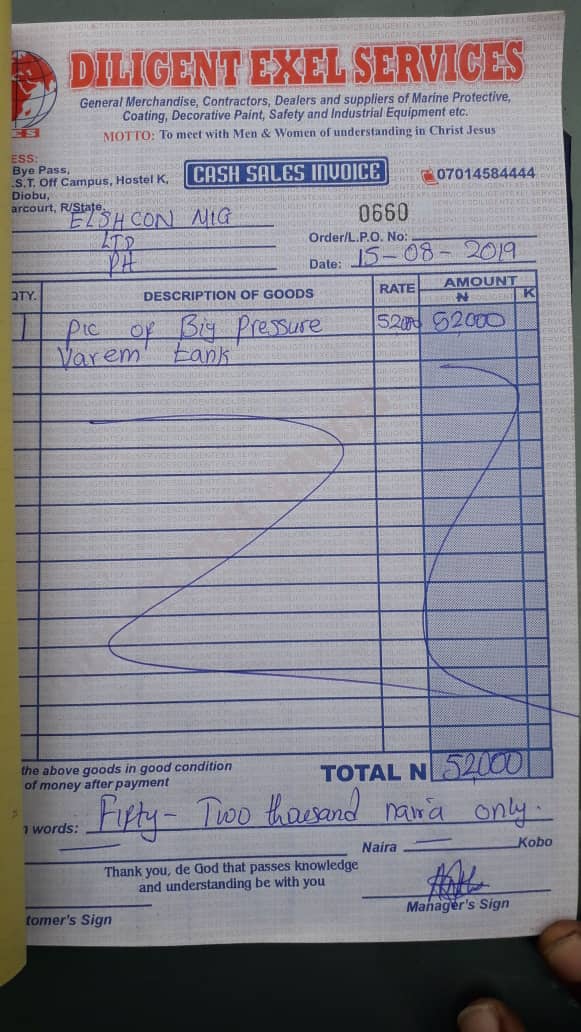 DILIGENT EXEL SERVICES
General Merchandise, Contractors, Dealers and suppliers of Marine Protective,
Coating, Decorative Paint, Safety and Industrial Equipment etc.
MOTTO: To meet with Men & Women of understanding in Christ Jesus
ESS:
Bye Pass,
.S.T. Off Campus, Hostel K,
Diobu,
arcourt, R/State.
CASH SALES INVOICE
07014584444
ELSHCON NIG
LTD
PH
0660
Order/L.P.O. No:
Date: 15-08-2019
QTY. DESCRIPTION OF GOODS RATE AMOUNT
N K
1 Pic of Big Pressure 52000 52000
Varem tank
the above goods in good condition
of money after payment
TOTAL N 52,000
n words: Fifty-Two thousand naira only.
Naira Kobo
Thank you, de God that passes knowledge
and understanding be with you
tomer's Sign
Manager's Sign